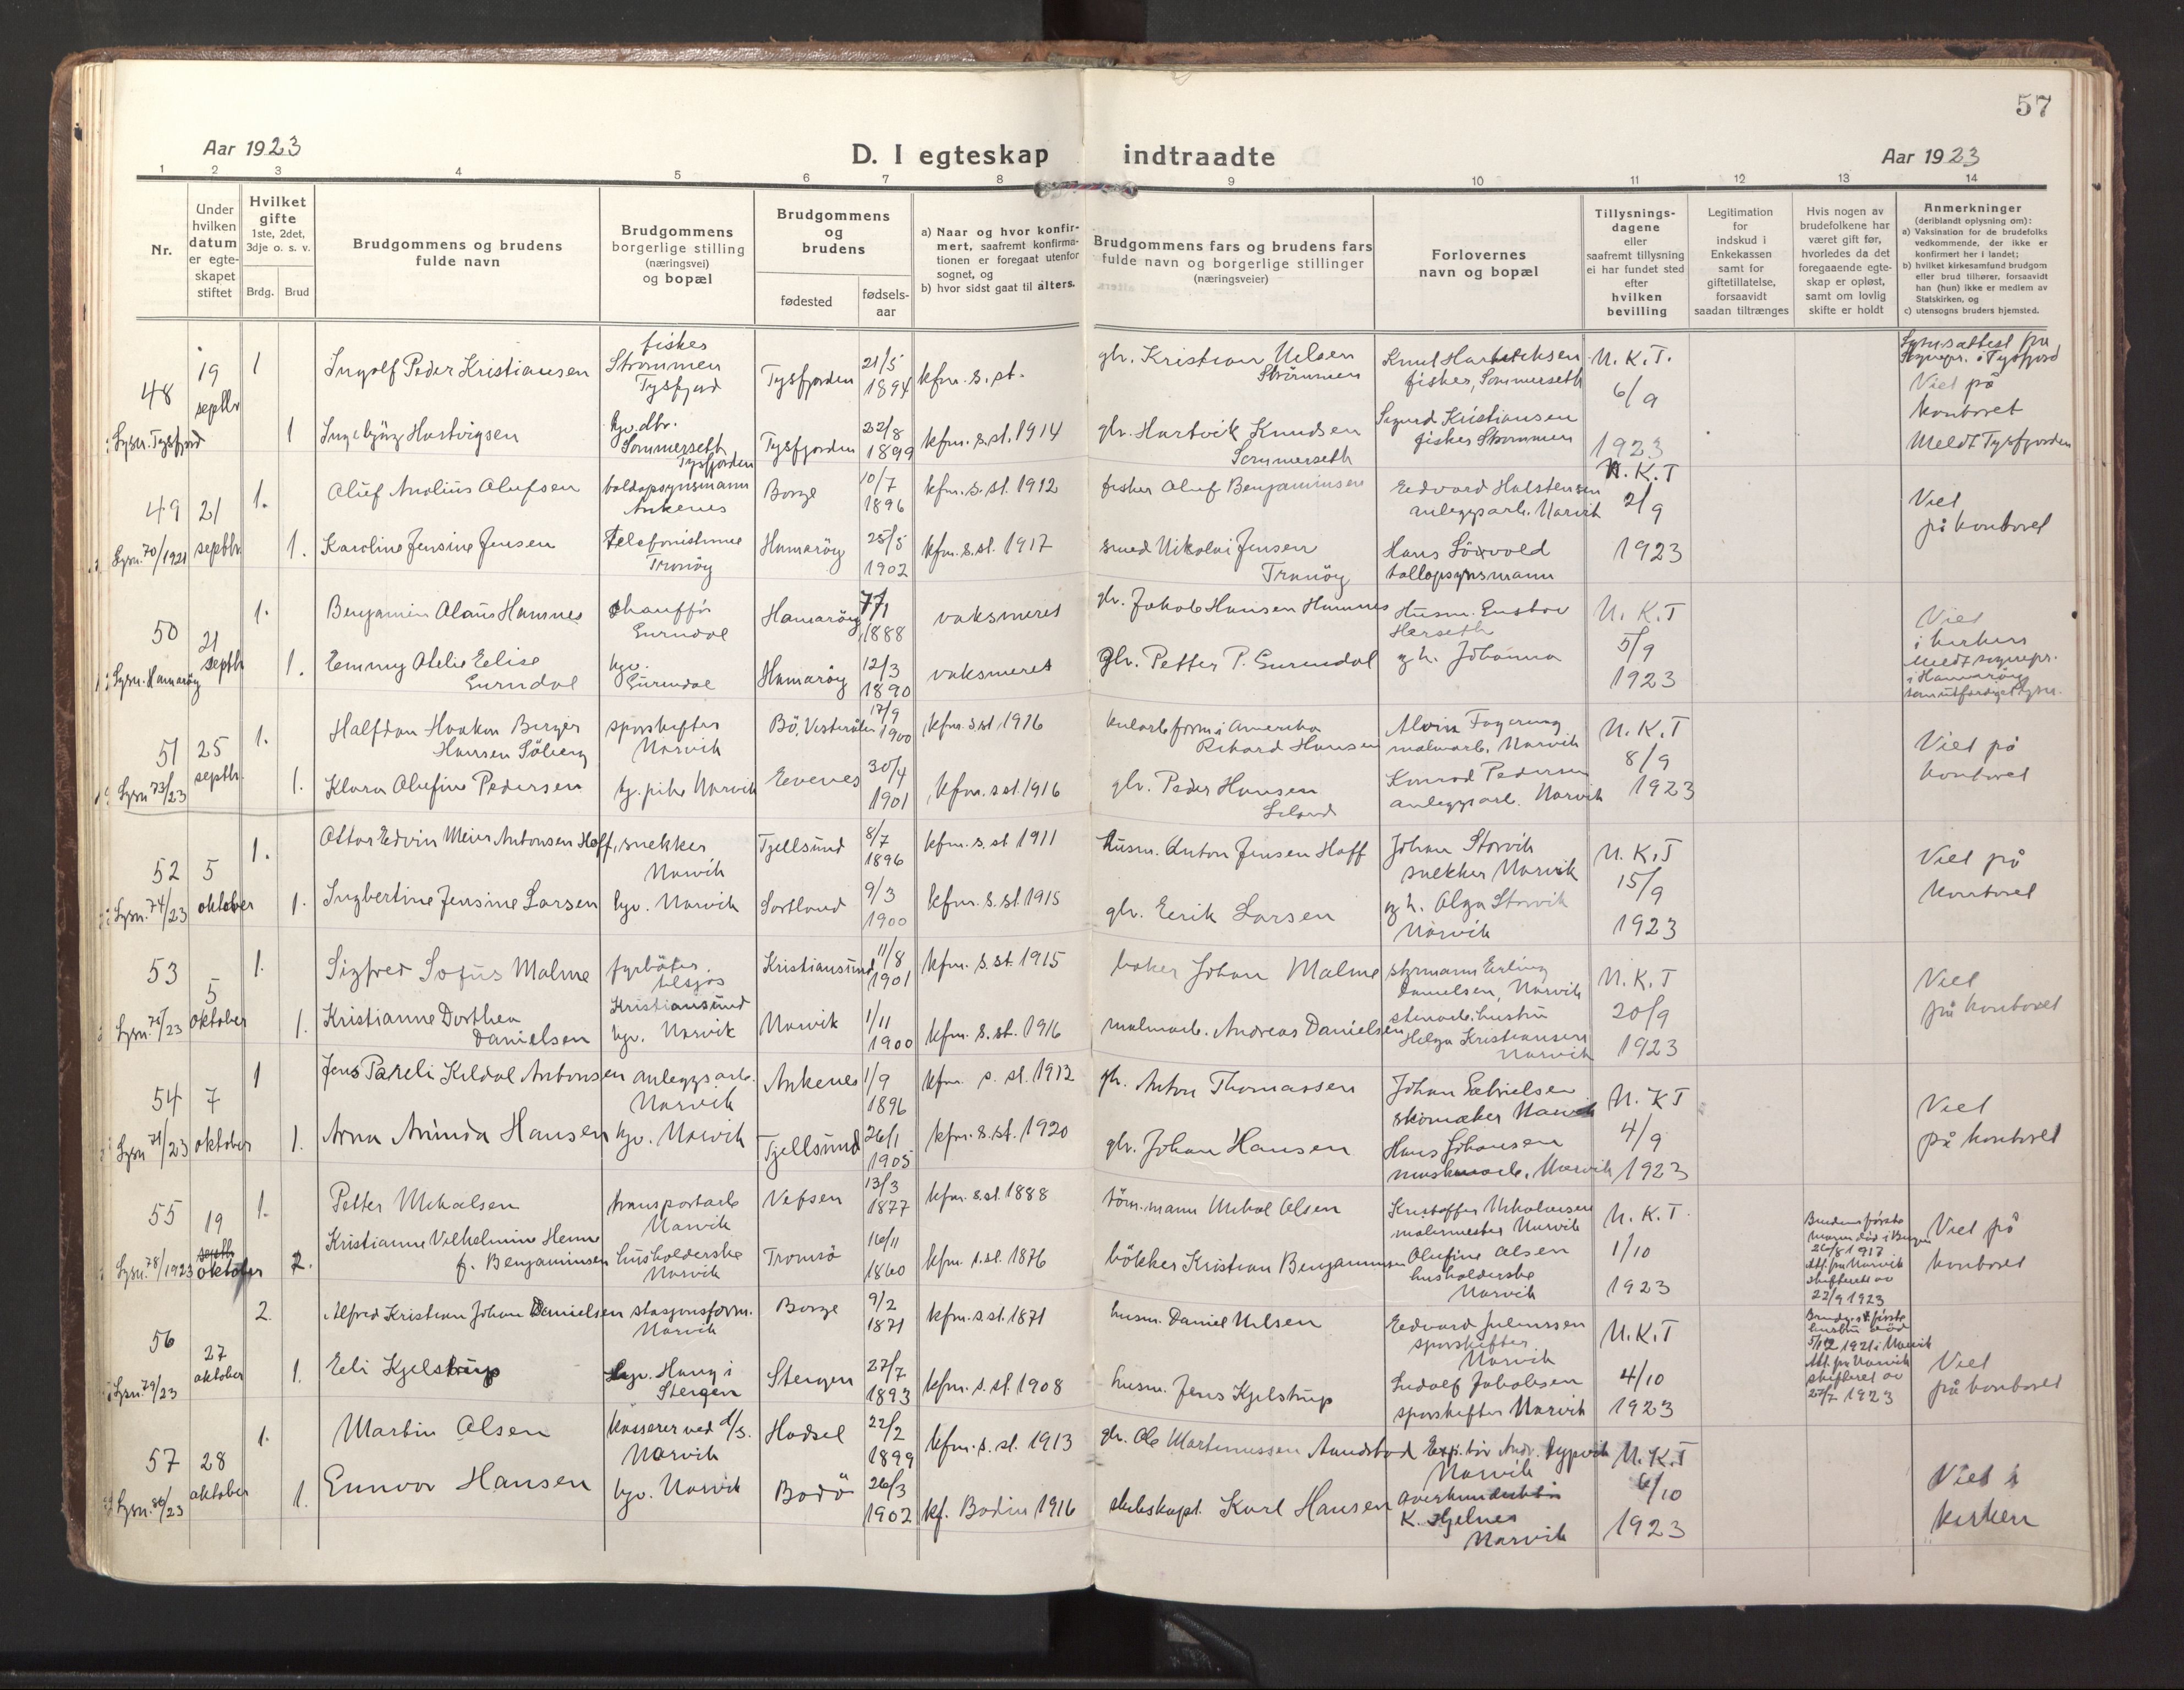 57
Aar 1923
D. I egteskap indtraadte
Aar 1923
1 2 3 4 5 6 7 8 9 10 11 12 13 14
Nr.
Under
hvilken
datum
er egte-
skapet
stiftet
Hvilket
gifte
1ste, 2det,
3dje o. s. v.
Brdg. Brud
Brudgommens og brudens
fulde navn
Brudgommens
borgerlige stilling
(næringsvei)
og bopæl
Brudgommens
og
brudens
fødested
fødsels-
aar
a) Naar og hvor konfir-
mert, saafremt konfirma-
tionen er foregaat utenfor
sognet, og
b) hvor sidst gaat til alters.
Brudgommens fars og brudens fars
fulde navn og borgerlige stillinger
(næringsveier)
Forlovernes
navn og bopæl
Tillysnings-
dagene
eller
saafremt tillysning
ei har fundet sted
efter
hvilken
bevilling
Legitimation
for
indskud i
Enkekassen
samt for
giftetillatelse,
forsaavidt
saadan tiltrænges
Hvis nogen av
brudefolkene har
været gift før,
hvorledes da det
foregaaende egte-
skap er opløst,
samt om lovlig
skifte er holdt
Anmerkninger
(deriblandt oplysning om):
a) Vaksination for de brudefolks
vedkommende, der ikke er
konfirmert her i landet;
b) hvilket kirkesamfund brudgom
eller brud tilhører, forsaavidt
han (hun) ikke er medlem av
Statskirken, og
c) utensogns bruders hjemsted.
48
Lysn. Tysfjord
19
septbr
1
Ingolf Peder Kristiansen
fisker
Strømmen
Tysfjord
Tysfjorden
21/5
1894
kfm. s. st.
gbr. Kristian Nilsen
Strömmen
Knut Hartviksen
fisker, Sommerseth
N. K. T.
6/9
1923
Lysn.attest fra
Sognepr. i Tysfjord
Viet på
kontoret
Meldt Tysfjorden
1
Ingebjørg Hartvigsen
hjv. dtr.
Sommerseth
Tysfjorden
Tysfjorden
22/8
1899
kfm. s. st. 1914
gbr. Hartvik Knudsen
Sommerseth
Sigurd Kristiansen
fisker Strømmen
49
Lysn. 70/1921
21
septbr
1.
Oluf Anolius Olufsen
toldopsynsmann
Ankenes
Borge
10/7
1896
kfm. s. st. 1912
fisker Oluf Benjaminsen
Edvard Halstensen
anleggsarb. Narvik
N. K. T
2/9
1923
Viet
på kontoret
1.
Karoline Jensine Jensen
telefonistinne
Tranöy
Hamaröy
25/5
1902
kfm. s. st. 1917
smed Nikolai Jensen
Tranöy
Hans Sörvold
tollopsynsmann
50
Lysn. Hamaröy
21
septb
1.
Benjamin Olaus Hamnes
chaufför
Hamaröy
7/1
1888
vaksineret
gbr. Jakob Hansen Hamnes
Husm. Gustav
Herseth
N. K. T
5/9
1923
Viet
i kirken
Meldt sognepr.
i Hamaröy
1.
Emmy Otelie Eelise
hjv.
Hamaröy
12/3
1890
vaksineret
Gbr. Petter P.
g. h. Johanna
51
Lysn. 73/23
25
septbr.
1.
Halfdan Haakon Birger
Hansen Söberg
sporskifter
Narvik
Bö, Vesterålen
17/9
1900
kfm. s. st 1916
i Amerika
Rikard Hansen
Alvin Fagernæs
malmarb. Narvik
N. K. T
8/9
1923
Viet på
kontoret
1.
Klara Olufine Pedersen
tj. pike Narvik
Evenes
30/4
1901
kfm. s. st. 1916
gbr. Peder Hansen
Leland
Konrad Pedersen
anleggsarb. Narvik
52
Lysn. 74/23
5
oktober
1.
Ottar Edvin Meier Antonsen Hoff
, snekker
Narvik
Tjellsund
8/7
1896
kfm. s. st 1911
Husm. Anton Jensen Hoff
Johan Storvik
snekker Narvik
N. K. T
15/9
1923
Viet på
kontoret
1.
Ingbertine Jensine Larsen
hjv. Narvik
Sortland
9/3
1900
kfm. s. st 1915
gbr. Eerik Larsen
g. h. Olga Storvik
Narvik
53
Lysn. 75/23
5
oktober
1.
Sigfred Sofus Malme
fyrböter
tilsjös
Kristiansund
Kristiansund
11/8
1901
kfm. s. st. 1915
baker Johan Malme
styrmann Erling
Danielsen, Narvik
N. K. T
20/9
1923
Viet
på kontoret
1.
Kristianne Dorthea
Danielsen
hjv. Narvik
Narvik
1/11
1900
kfm. s. st. 1916
malmarb. Andreas Danielsen
stenarb. hustru
Helga Kristiansen
Narvik
54
Lysn. 71/23
7
oktober
1
Jens Pareli Kildal Antonsen
anleggsarb.
Narvik
Ankenes
1/9
1896
kfm. s. st. 1912
gbr. Anton Thomassen
Johan Gabrielsen
skomaker Narvik
N. K T
4/9
1923
Viet
på kontoret
1.
Arna Aminda Hansen
hjv. Narvik
Tjellsund
26/1
1905
kfm. s. st. 1920
gbr. Johan Hansen
Hans Johansen
Narvik
55
Lysn. 78/1923
19
septb
oktober
1.
Petter Mikalsen
transportarb
Narvik
Vefsen
13/3
1877
kfm. s. st. 1888
töm. mann Mikal Olsen
Kristoffer Mikalsen
malermester Narvik
N. K. T.
1/10
1923
Brudens förste
mann död i Bergen
26/8 1917
Att. fra Narvik
skifteret av
22/9 1923
Viet på
kontoret
2.
Kristianne Vilhelmine Henne
f. Benjaminsen
husholderske
Narvik
Tromsö
16/11
1860
kfm. s. st. 1876
bökker Kristian Benjaminsen
Olufine Olsen
husholderske
Narvik
56
Lysn. 79/23
27
oktober
2.
Alfred Kristian Johan Danielsen
stasjonsform.
Narvik
Borge
9/2
1871
kfm. s. st. 1871
husm. Daniel Nilsen
Edvard Juliussen
sporskifter
Narvik
N. K. T
4/10
1923
Brudg.s förste
hustru död
5/12 1921 i Narvik
Att. fra Narvik
skifteret av
27/7 1923
Viet
på kontoret
1.
Eli Kjelstrup
hjv. Haug i
Steigen
Steigen
27/7
1893
kfm. s. st. 1908
husm. Jens Kjelstrup
Ludolf Jakobsen
sporskifter Narvik
57
Lysn. 86/23
28
oktober
1.
Martin Olsen
kasserer ved d/s.
Narvik
Hadsel
22/2
1899
kfm. s. st. 1913
gbr. Ole Martinussen Aundstad
Narvik
N. K. T
6/10
1923
Viet i
kirken
1.
Gunvor Hansen
hjv. Narvik
Bodö
26/3
1902
kf. Bodin 1916
skibskapt. Karl Hansen
K. Hjelnes
Narvik